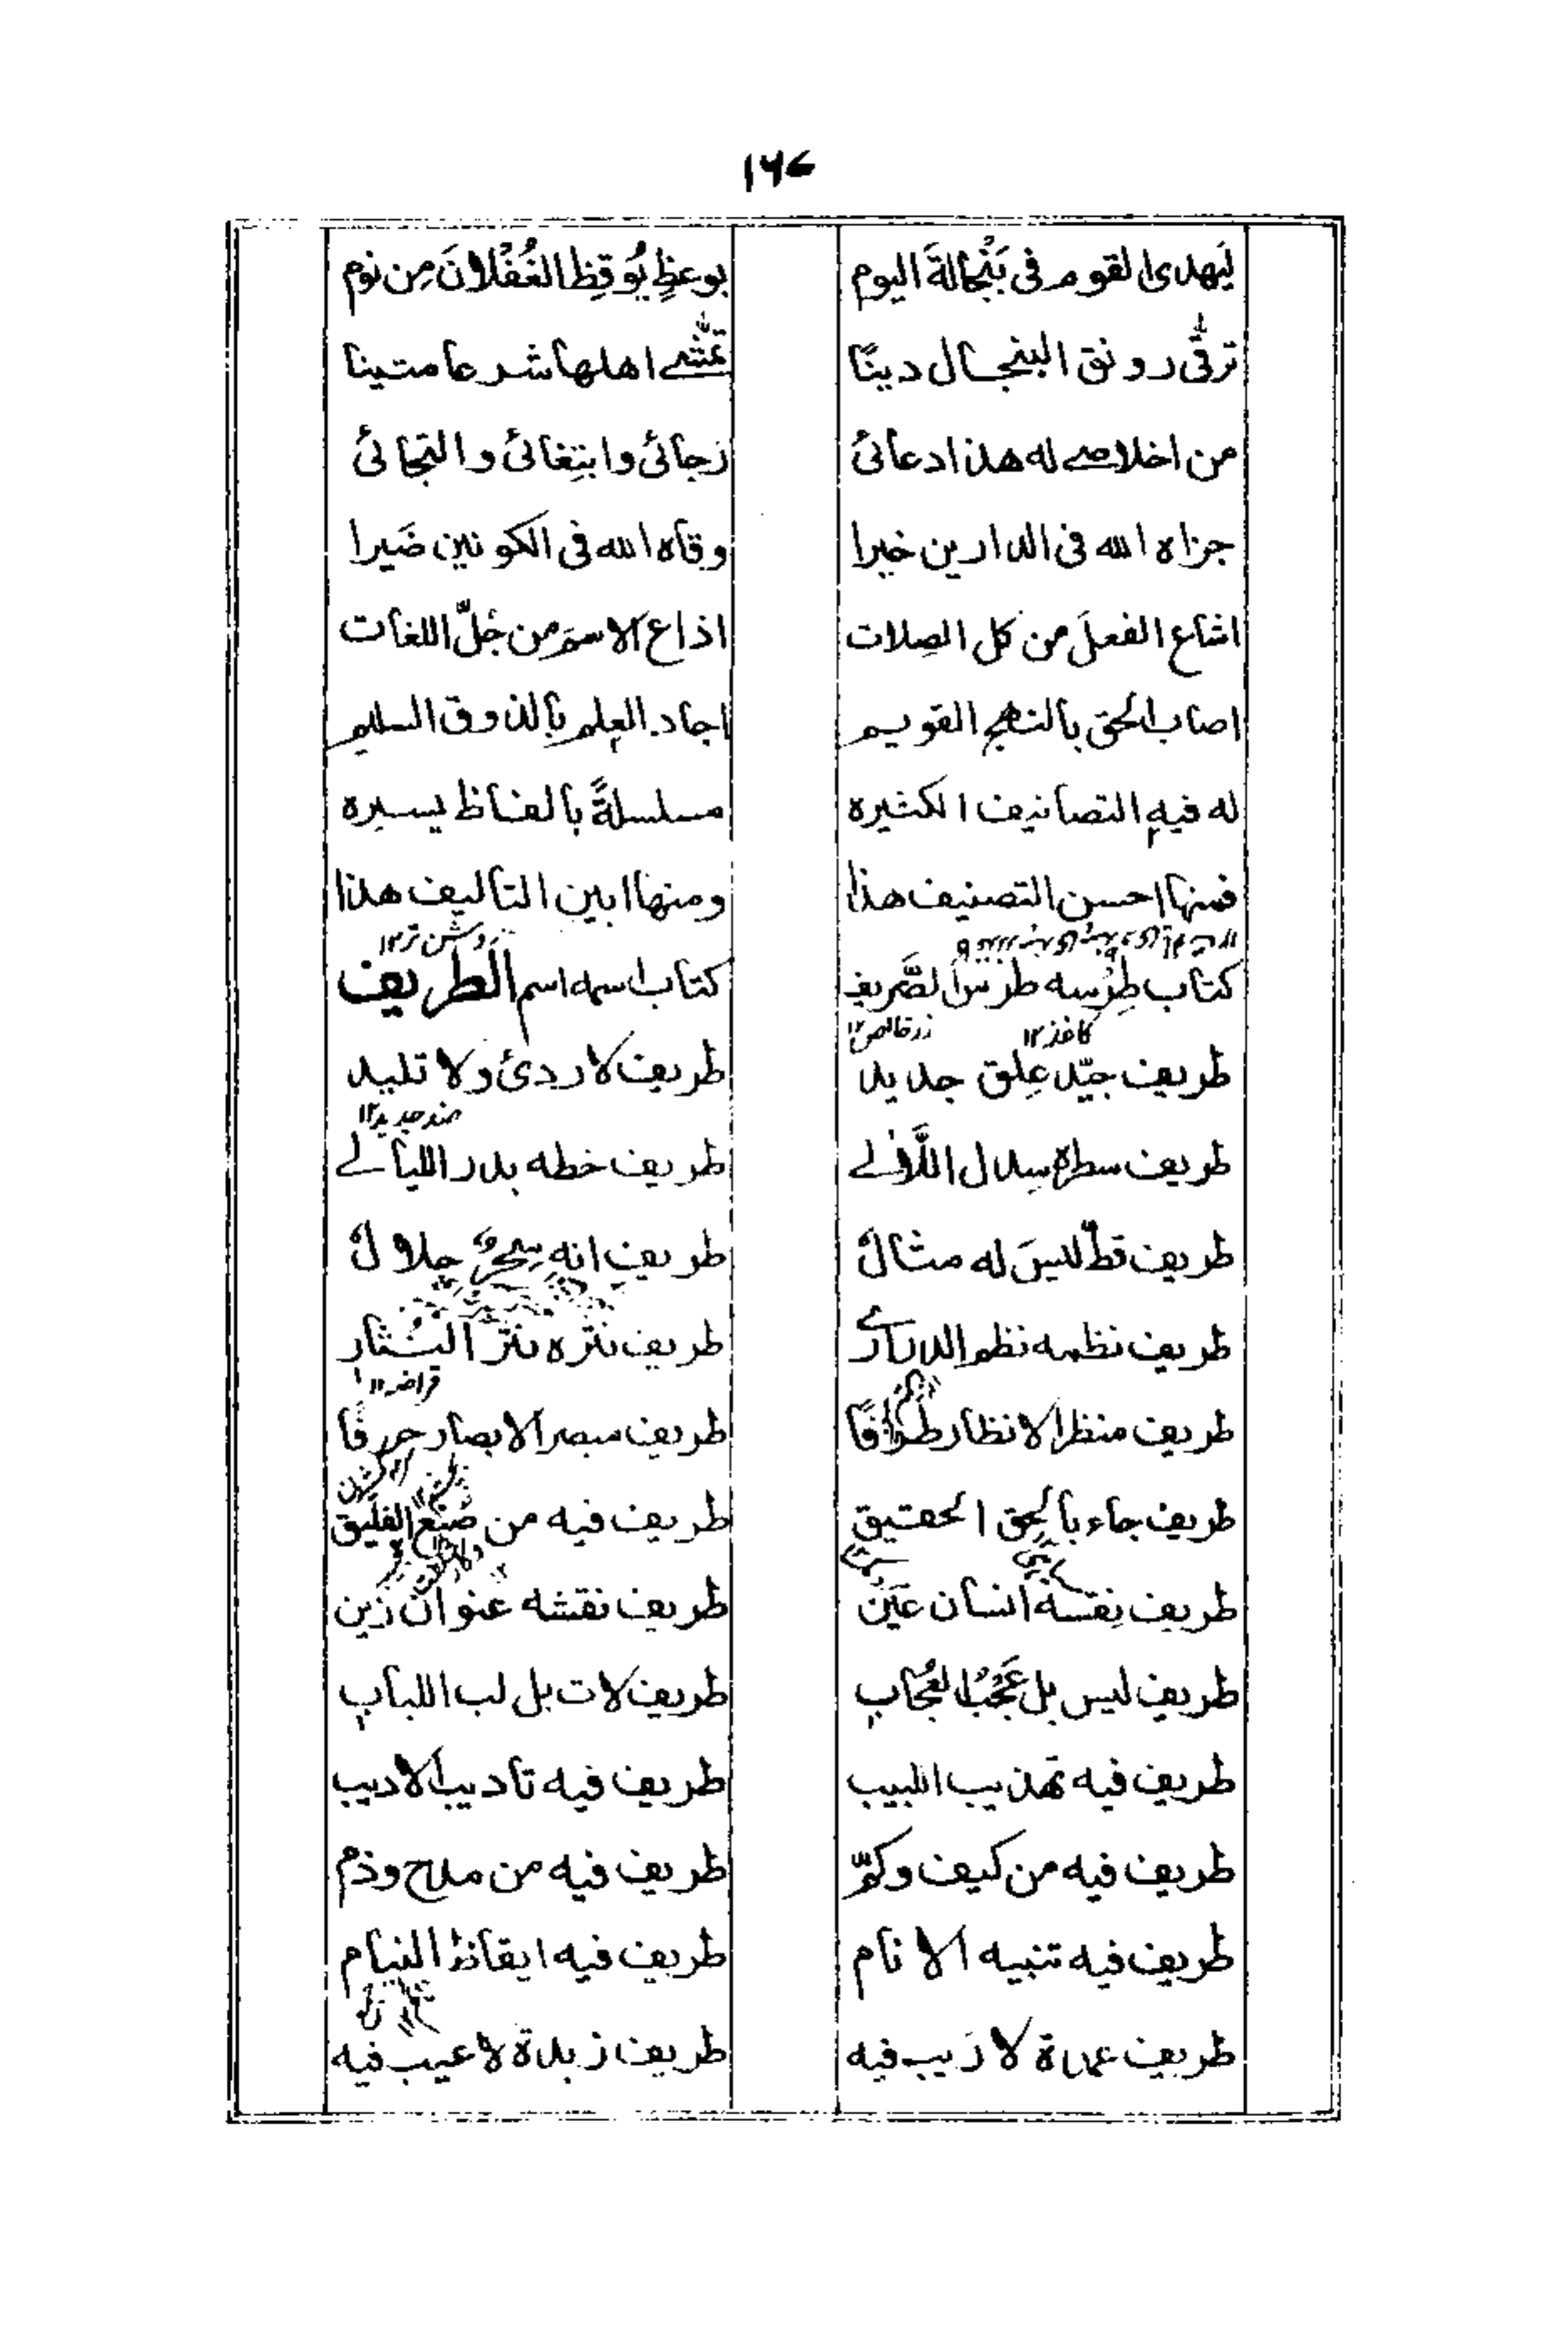 ۱۶۷
لَيهدى القوم فى بَنْجالةَ اليوم بوعظٍ يُوقِظ الغُفْلانَ مِن نوم
ترقّى رونق البنجال دينًا تمشّے اهلها شرعا متينا
من اخلاصے له هذا دعائى رجائى وابتغائى والتجائى
جزاه الله فى الدارين خيرا وقاه الله فى الكونين ضَيرا
اشاع الفعلَ من كل الصِلات اذاع الاسمَ من جُلّ اللغات
اصاب الحق بالنهج القويم اجاد العلم بالذوق السليم
له فيه التصانيف الكثيره مسلسلةً بالفاظ يسيره
فمنها احسن التصنيف هذا ومنها ابين التاليف هذا
روشن تر۱۲
كتاب طِرْسه طرس الصَّريف كتاب اسمه اسم الَطريف
كاغذ۱۲ زر خالص۱۲
طريف جيّد عِلق جديد طريف لاردئ ولا تليد
ضد جديد۱۲
طريف سطره سِدال اللَّالے طريف خطه بدر الليالے
طريف قطّ ليسَ له مثالٌ طريف انه سِحرٌ حِلالٌ
طريف نظمه نظم الدرارے طريف نثره نثر النُثار
قراضه۱۲
طريف منظر الانظار طرافًا طريف مبصر الابصار حرفًا
طريف جاء بالحق الحقيق طريف فيه من صُنع الفليق
طريف نِقسه انسان عَين طريف نقشه عنوان زَين
طريف ليس بل عَجْبُ العُجاب طريف لات بل لب اللباب
طريف فيه تهذيب اللبيب طريف فيه تاديب الاديب
طريف فيه من كيف وكمّ طريف فيه من مدح وذم
طريف فيه تنبيه الانام طريف فيه ايقاظ النيام
طريف عمدة لا رَيب فيه طريف زبدة لا عيب فيه